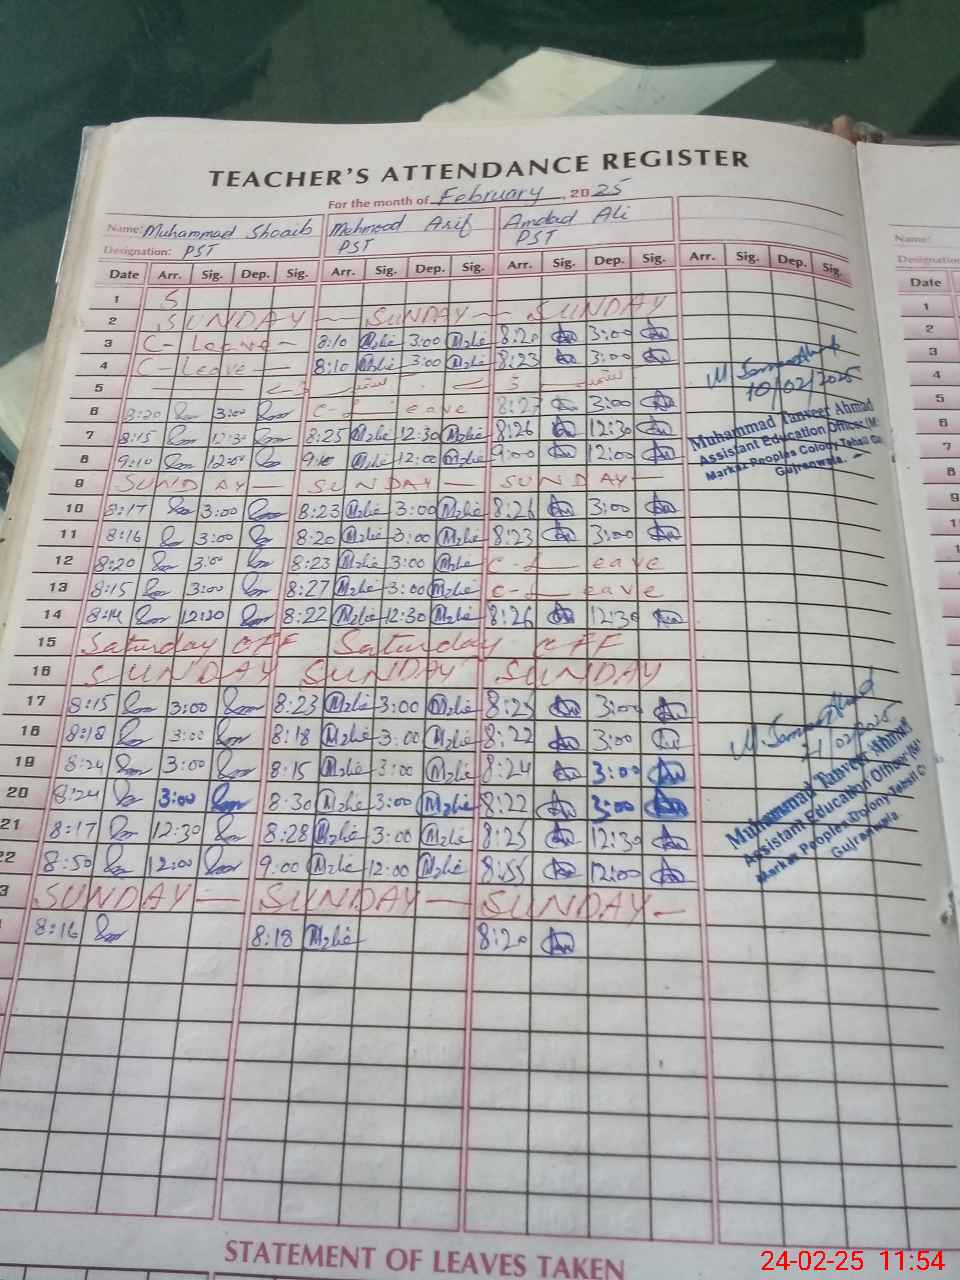 TEACHER'S ATTENDANCE REGISTER
For the month of February, 2025
Name: Muhammad Shoaib Mehmood Arif Amdad Ali Name:
Designation: PST PST PST Designation
Date Arr. Sig. Dep. Sig. Arr. Sig. Dep. Sig. Arr. Sig. Dep. Sig. Arr. Sig. Dep. Sig. Date
1 S 1
2 SUNDAY — SUNDAY — SUNDAY 2
3 C- Leave - 8:10 3:00 8:20 3:00 3
4 C- Leave — 8:10 3:00 8:23 3:00 4
5 5
6 8:20 3:00 C-Leave 8:27 3:00 6
7 8:15 12:30 8:25 12:30 8:26 12:30 7
8 9:10 12:00 9:10 12:00 9:00 12:00 8
9 SUNDAY — SUNDAY — SUNDAY — 9
10 8:17 3:00 8:23 3:00 8:26 3:00
11 8:16 3:00 8:20 3:00 8:23 3:00
12 8:20 3:00 8:23 3:00 C-Leave
13 8:15 3:00 8:27 3:00 C-Leave
14 8:14 12:30 8:22 12:30 8:26 12:30
15 Saturday OFF Saturday OFF
16 SUNDAY SUNDAY SUNDAY
17 8:15 3:00 8:23 3:00 8:25 3:00
18 8:18 3:00 8:18 3:00 8:22 3:00
19 8:24 3:00 8:15 3:00 8:24 3:00
20 8:24 3:00 8:30 3:00 8:22 3:00
21 8:17 12:30 8:28 3:00 8:25 12:30
22 8:50 12:00 9:00 12:00 8:55 12:00
3 SUNDAY — SUNDAY — SUNDAY —
8:16 8:18 8:20
10/02/2025
Muhammad Tanveer Ahmad
Assistant Education Officer (M)
Markaz Peoples Colony Tehsil
Gujranwala
02/2025
Muhammad Tanveer Ahmad
Assistant Education Officer (M)
Markaz Peoples Colony Tehsil
Gujranwala
STATEMENT OF LEAVES TAKEN
24-02-25 11:54